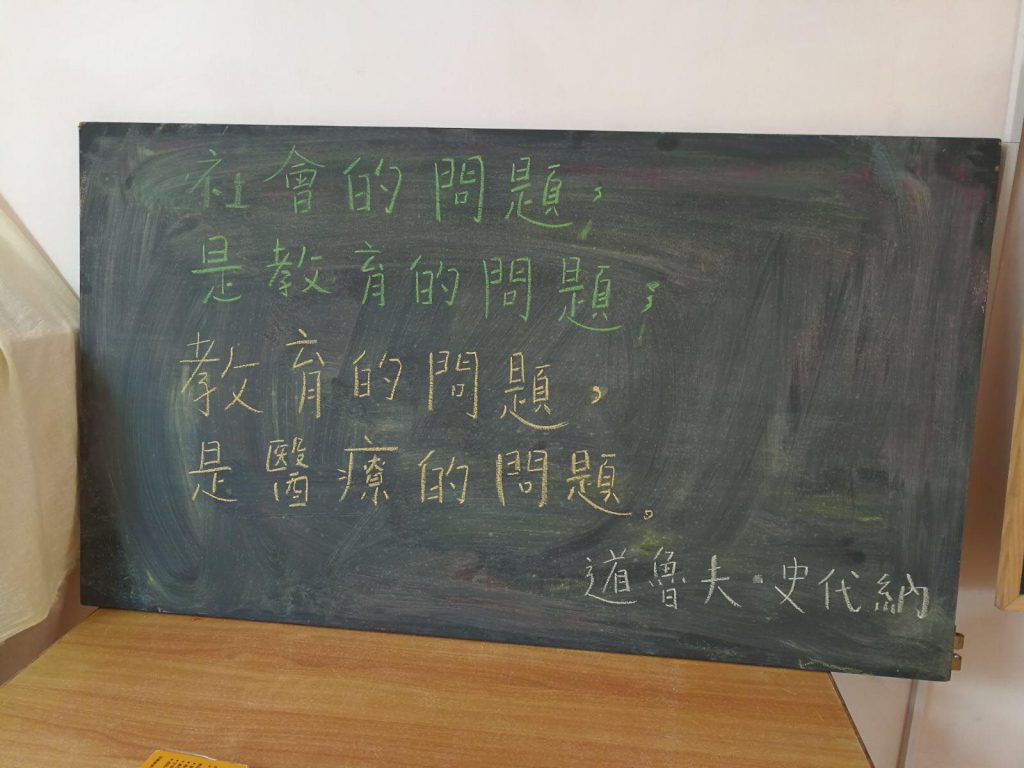 社會的問題,
是教育的問題;
教育的問題,
是醫療的問題。
道魯夫·史代納